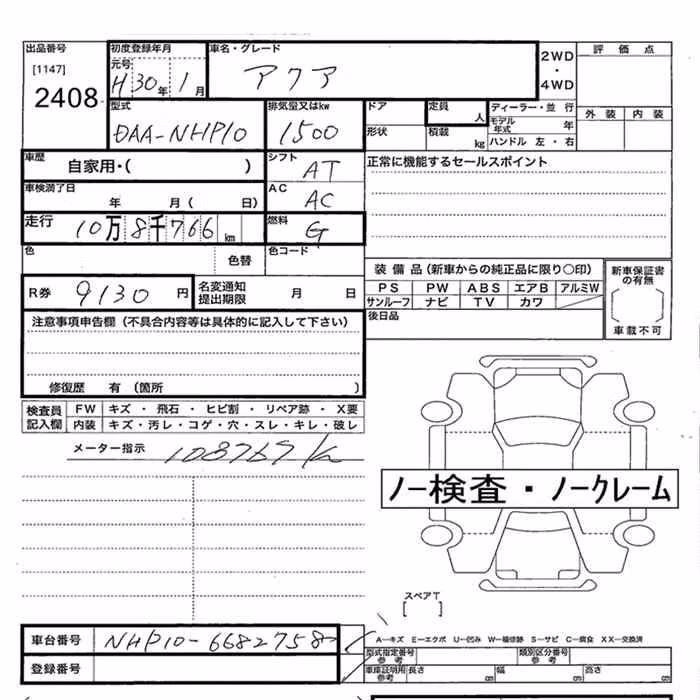 出品番号 初度登録年月 車名・グレード 2WD ・ 4WD 評価点
[1147] 元号 H 30年 1月 アクア
2408 外装 内装
型式 排気量又はkw ドア 定員 人 ディーラー・並 行
DAA-NHP10 1500 形状 積載 kg モデル年式 年
ハンドル 左・右
車歴 自家用・( ) シフト AT 正常に機能するセールスポイント
車検満了日 年 月( 日) AC AC
走行 10万8千766km 燃料 G
色 色替 色コード
装備品(新車からの純正品に限り○印) 新車保証書の有無
R券 9130円 名変通知提出期限 月 日 PS PW ABS エアB アルミW
サンルーフ ナビ TV カワ
後日品 車載不可
注意事項申告欄(不具合内容等は具体的に記入して下さい)
修復歴 有(箇所 )
検査員記入欄 FW キズ・飛石・ヒビ割・リペア跡・X要
内装 キズ・汚レ・コゲ・穴・スレ・キレ・破レ
メーター指示 108767km
ノー検査・ノークレーム
スペアT
[ ]
車台番号 NHP10-6682758
A―キズ E―エクボ U―凹み W―補修跡 S―サビ C―腐食 XX―交換済
型式指定番号 参考 類別区分番号 参考
登録番号 車庫証明用 参考 長さ 幅 高さ